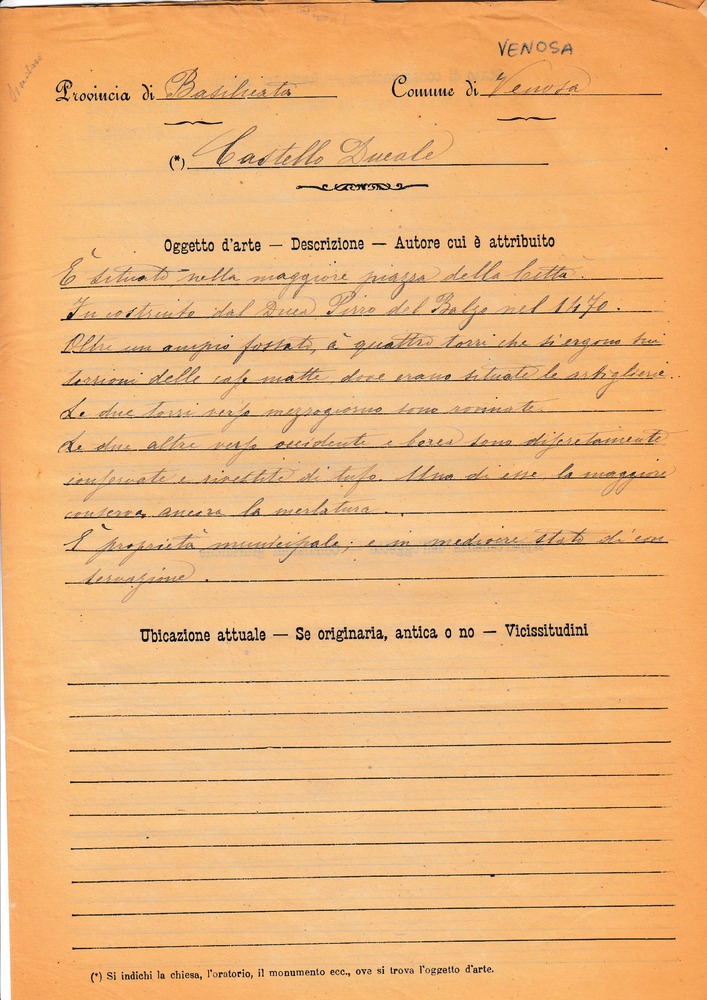 VENOSA
Provincia di Basilicata Comune di Venosa
(*) Castello Ducale
Oggetto d'arte — Descrizione — Autore cui è attribuito
È situato nella maggiore piazza della Città.
Fu costruito dal Duca Pirro del Balzo nel 1470.
Oltre un ampio fossato, à quattro torri che si ergono sui
torrioni delle case matte, dove erano situate le artiglierie.
Le due torri verso mezzogiorno sono rovinate.
Le due altre verso occidente e borea sono discretamente
conservate e rivestite di tufo. Una di esse, la maggiore
conserva ancora la merlatura.
È proprietà municipale; e in mediocre stato di con
servazione.
Ubicazione attuale — Se originaria, antica o no — Vicissitudini
(*) Si indichi la chiesa, l'oratorio, il monumento ecc., ove si trova l'oggetto d'arte.